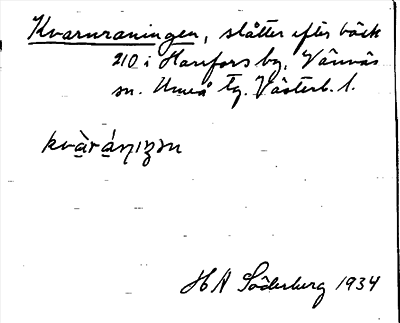 Kvarnraningen, slåtter efter bäck
210 i Harrfors by, Vännäs
sn. Umeå tg. Västerb. l.
kvàráṇıŋən
H A Söderberg 1934